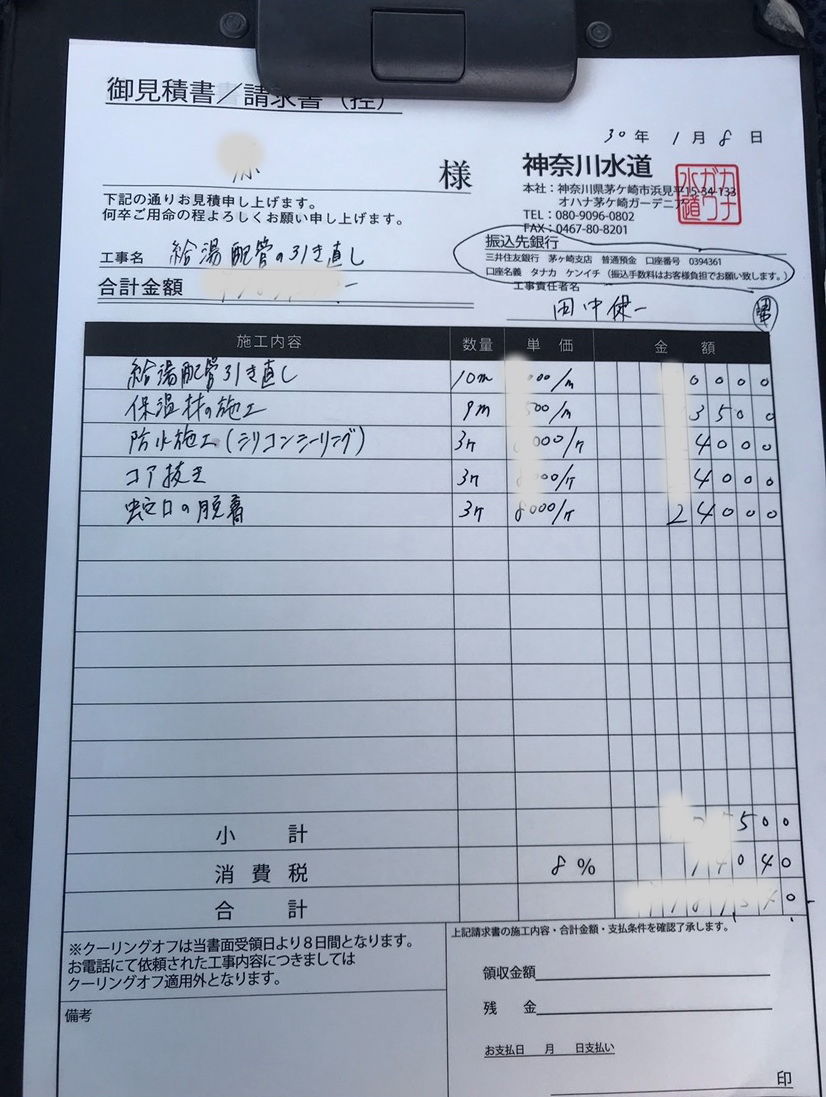 御見積書／請求書（控）
30年 1月 8日
様
下記の通りお見積申し上げます。
何卒ご用命の程よろしくお願い申し上げます。
神奈川水道
カナガワ水道
本社：神奈川県茅ヶ崎市浜見平15-34-133
オハナ茅ケ崎ガーデニア
TEL：080-9096-0802
FAX：0467-80-8201
振込先銀行
三井住友銀行 茅ヶ崎支店 普通預金 口座番号 0394361
口座名義 タナカ ケンイチ（振込手数料はお客様負担でお願い致します。）
工事名 給湯配管の引き直し
合計金額
工事責任者名
田中健一
施工内容 数量 単価 金額
給湯配管引き直し 10m 000/m 0000
保温材の施工 9m 500/m 3500
防水施工(シリコンシーリング) 3ヶ 000/ヶ 4000
コア抜き 3ヶ 000/ヶ 4000
蛇口の脱着 3ヶ 8000/ヶ 24000
小計 500
消費税 8% 14040
合計 0
※クーリングオフは当書面受領日より８日間となります。
お電話にて依頼された工事内容につきましては
クーリングオフ適用外となります。
備考
上記請求書の施工内容・合計金額・支払条件を確認了承します。
領収金額
残 金
お支払日 月 日支払い
印